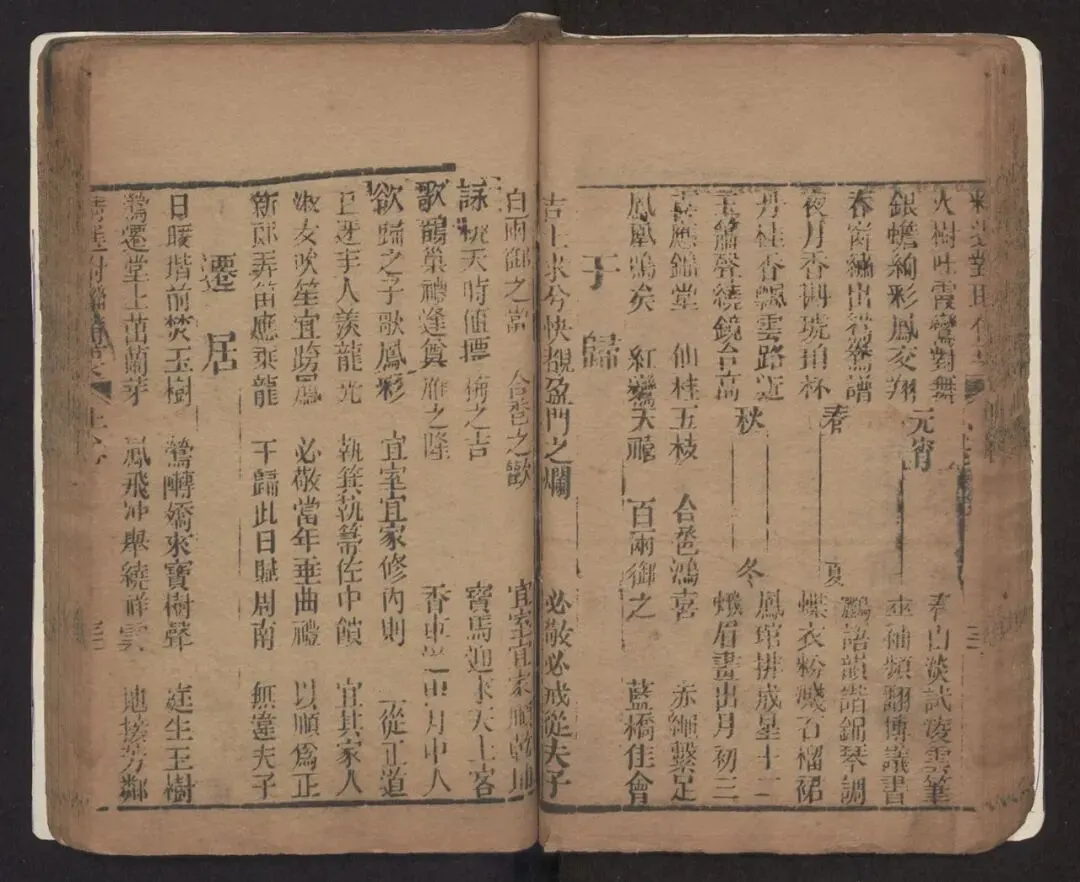 火樹吐霞鸞對舞 淡試凌雲筆
銀蟾絢彩鳳交翔 元宵 袖頻翻博議書
春窗繡出鴛鴦譜 鸝語韻諧錦琴調
夜月香斟琥珀杯 春 夏 蝶衣粉襯石榴裙
丹桂香飄雲路近 鳳琯排成星十二
玉簫聲繞鏡台高 秋 冬 蛾眉畫出月初三
喜應錦堂 仙桂五枝 合巹鴻喜 赤繩繫足
鳳凰鳴矣 紅鸞天禧 百兩御之 藍橋佳會
于歸
吉士求兮快覩盈門之爛 必敬必戒從夫子
百兩御之 合巹之歡 宜室宜家順
詠桃夭時值摽梅之吉 寶馬迎來天上客
歌鵲巢禮逢奠雁之隆 香車 出月中人
欲歸之子歌鳳彩 宜室宜家修內則 一從正道
人羨龍光 執箕執箒佐中饋 宜其家人
淑女吹笙宜跨鳳 必敬當年垂曲禮 以順爲正
新郎弄笛應乘龍 于歸此日賦周南 無違夫子
遷居
日暖堦前焚玉樹 鶯囀喬來寶樹聲 庭生玉樹
鶯遷堂上茁蘭芽 鳳飛冲舉繞祥雲 地接芳鄰